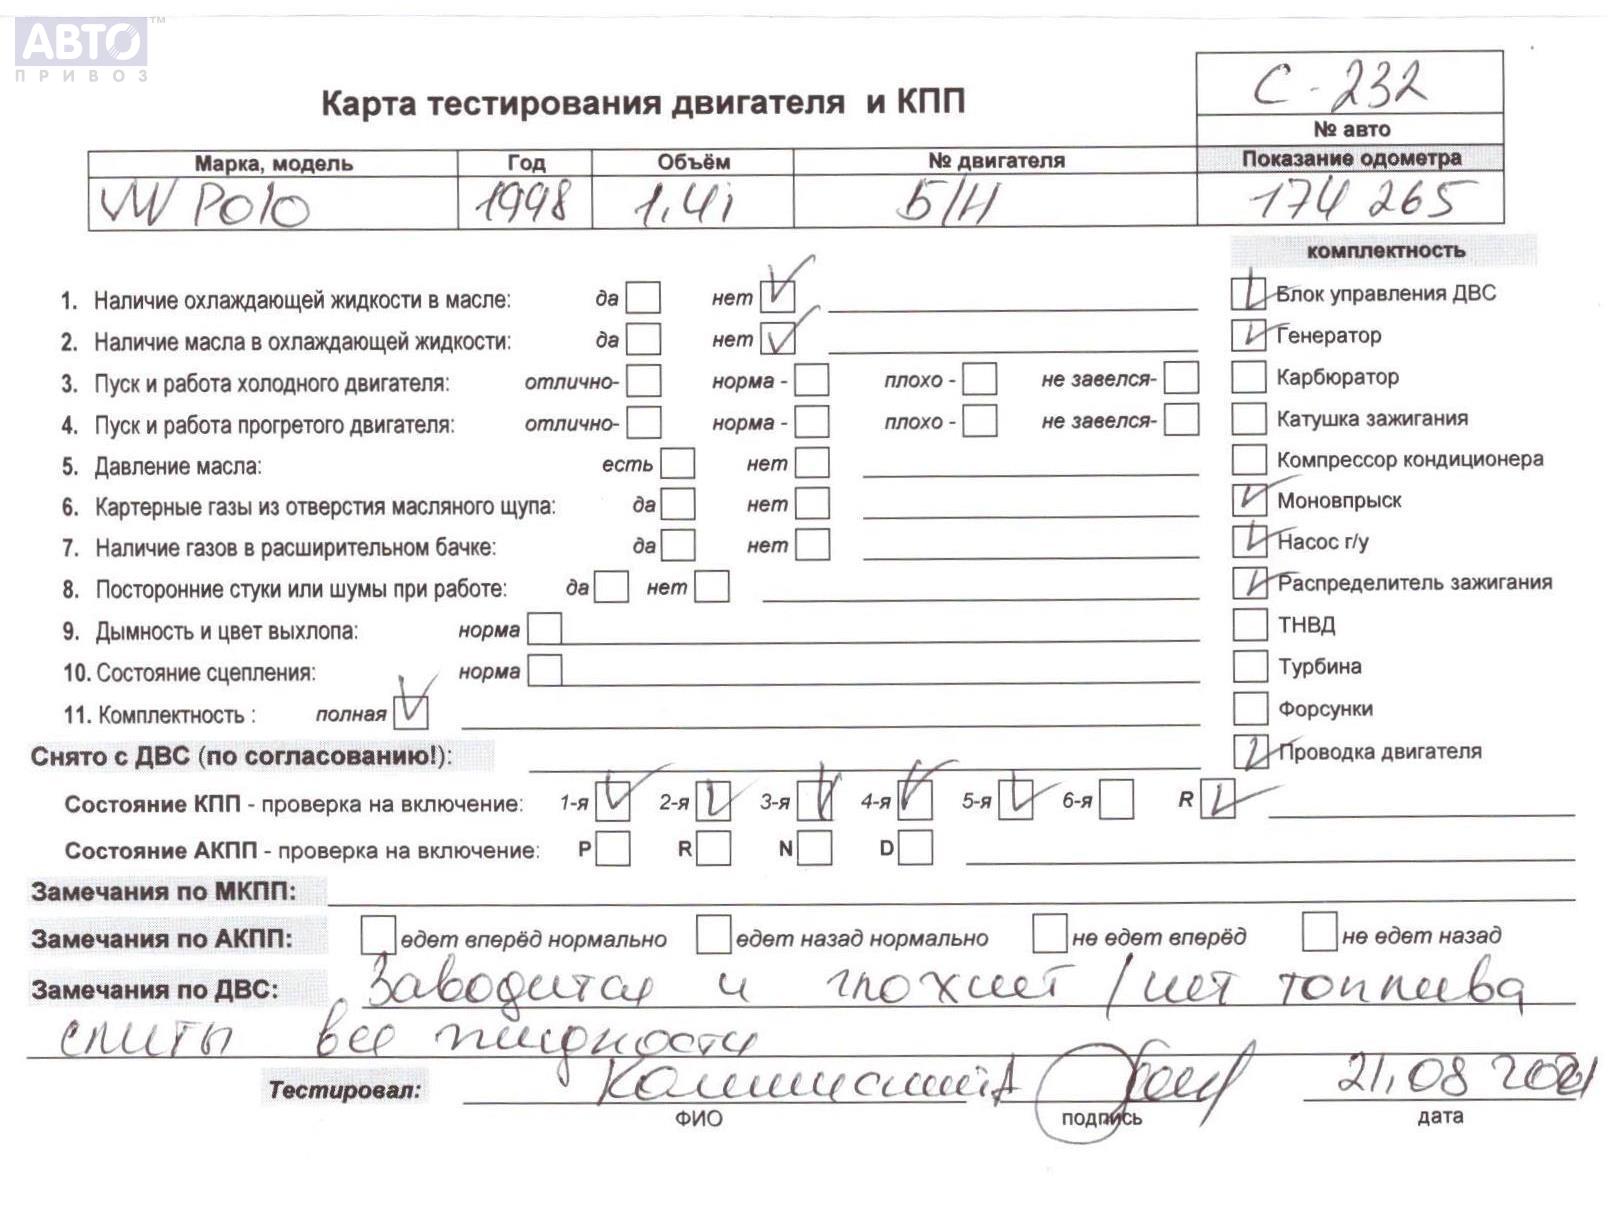 АВТО™
ПРИВОЗ
С-232
Карта тестирования двигателя и КПП
№ авто
Марка, модель Год Объём № двигателя Показание одометра
VW Polo 1998 1,4i Б/Н 174 265
комплектность
1. Наличие охлаждающей жидкости в масле: да нет
Блок управления ДВС
2. Наличие масла в охлаждающей жидкости: да нет
Генератор
3. Пуск и работа холодного двигателя: отлично- норма - плохо - не завелся-
Карбюратор
4. Пуск и работа прогретого двигателя: отлично- норма - плохо - не завелся-
Катушка зажигания
5. Давление масла: есть нет
Компрессор кондиционера
6. Картерные газы из отверстия масляного щупа: да нет
Моновпрыск
7. Наличие газов в расширительном бачке: да нет
Насос г/у
8. Посторонние стуки или шумы при работе: да нет
Распределитель зажигания
9. Дымность и цвет выхлопа: норма
ТНВД
10. Состояние сцепления: норма
Турбина
11. Комплектность : полная
Форсунки
Снято с ДВС (по согласованию!):
Проводка двигателя
Состояние КПП - проверка на включение: 1-я 2-я 3-я 4-я 5-я 6-я R
Состояние АКПП - проверка на включение: P R N D
Замечания по МКПП:
Замечания по АКПП: едет вперёд нормально едет назад нормально не едет вперёд не едет назад
Замечания по ДВС: Заводится и глохнет / нет топлива
слиты все жидкости
Тестировал: 21.08
ФИО подпись дата